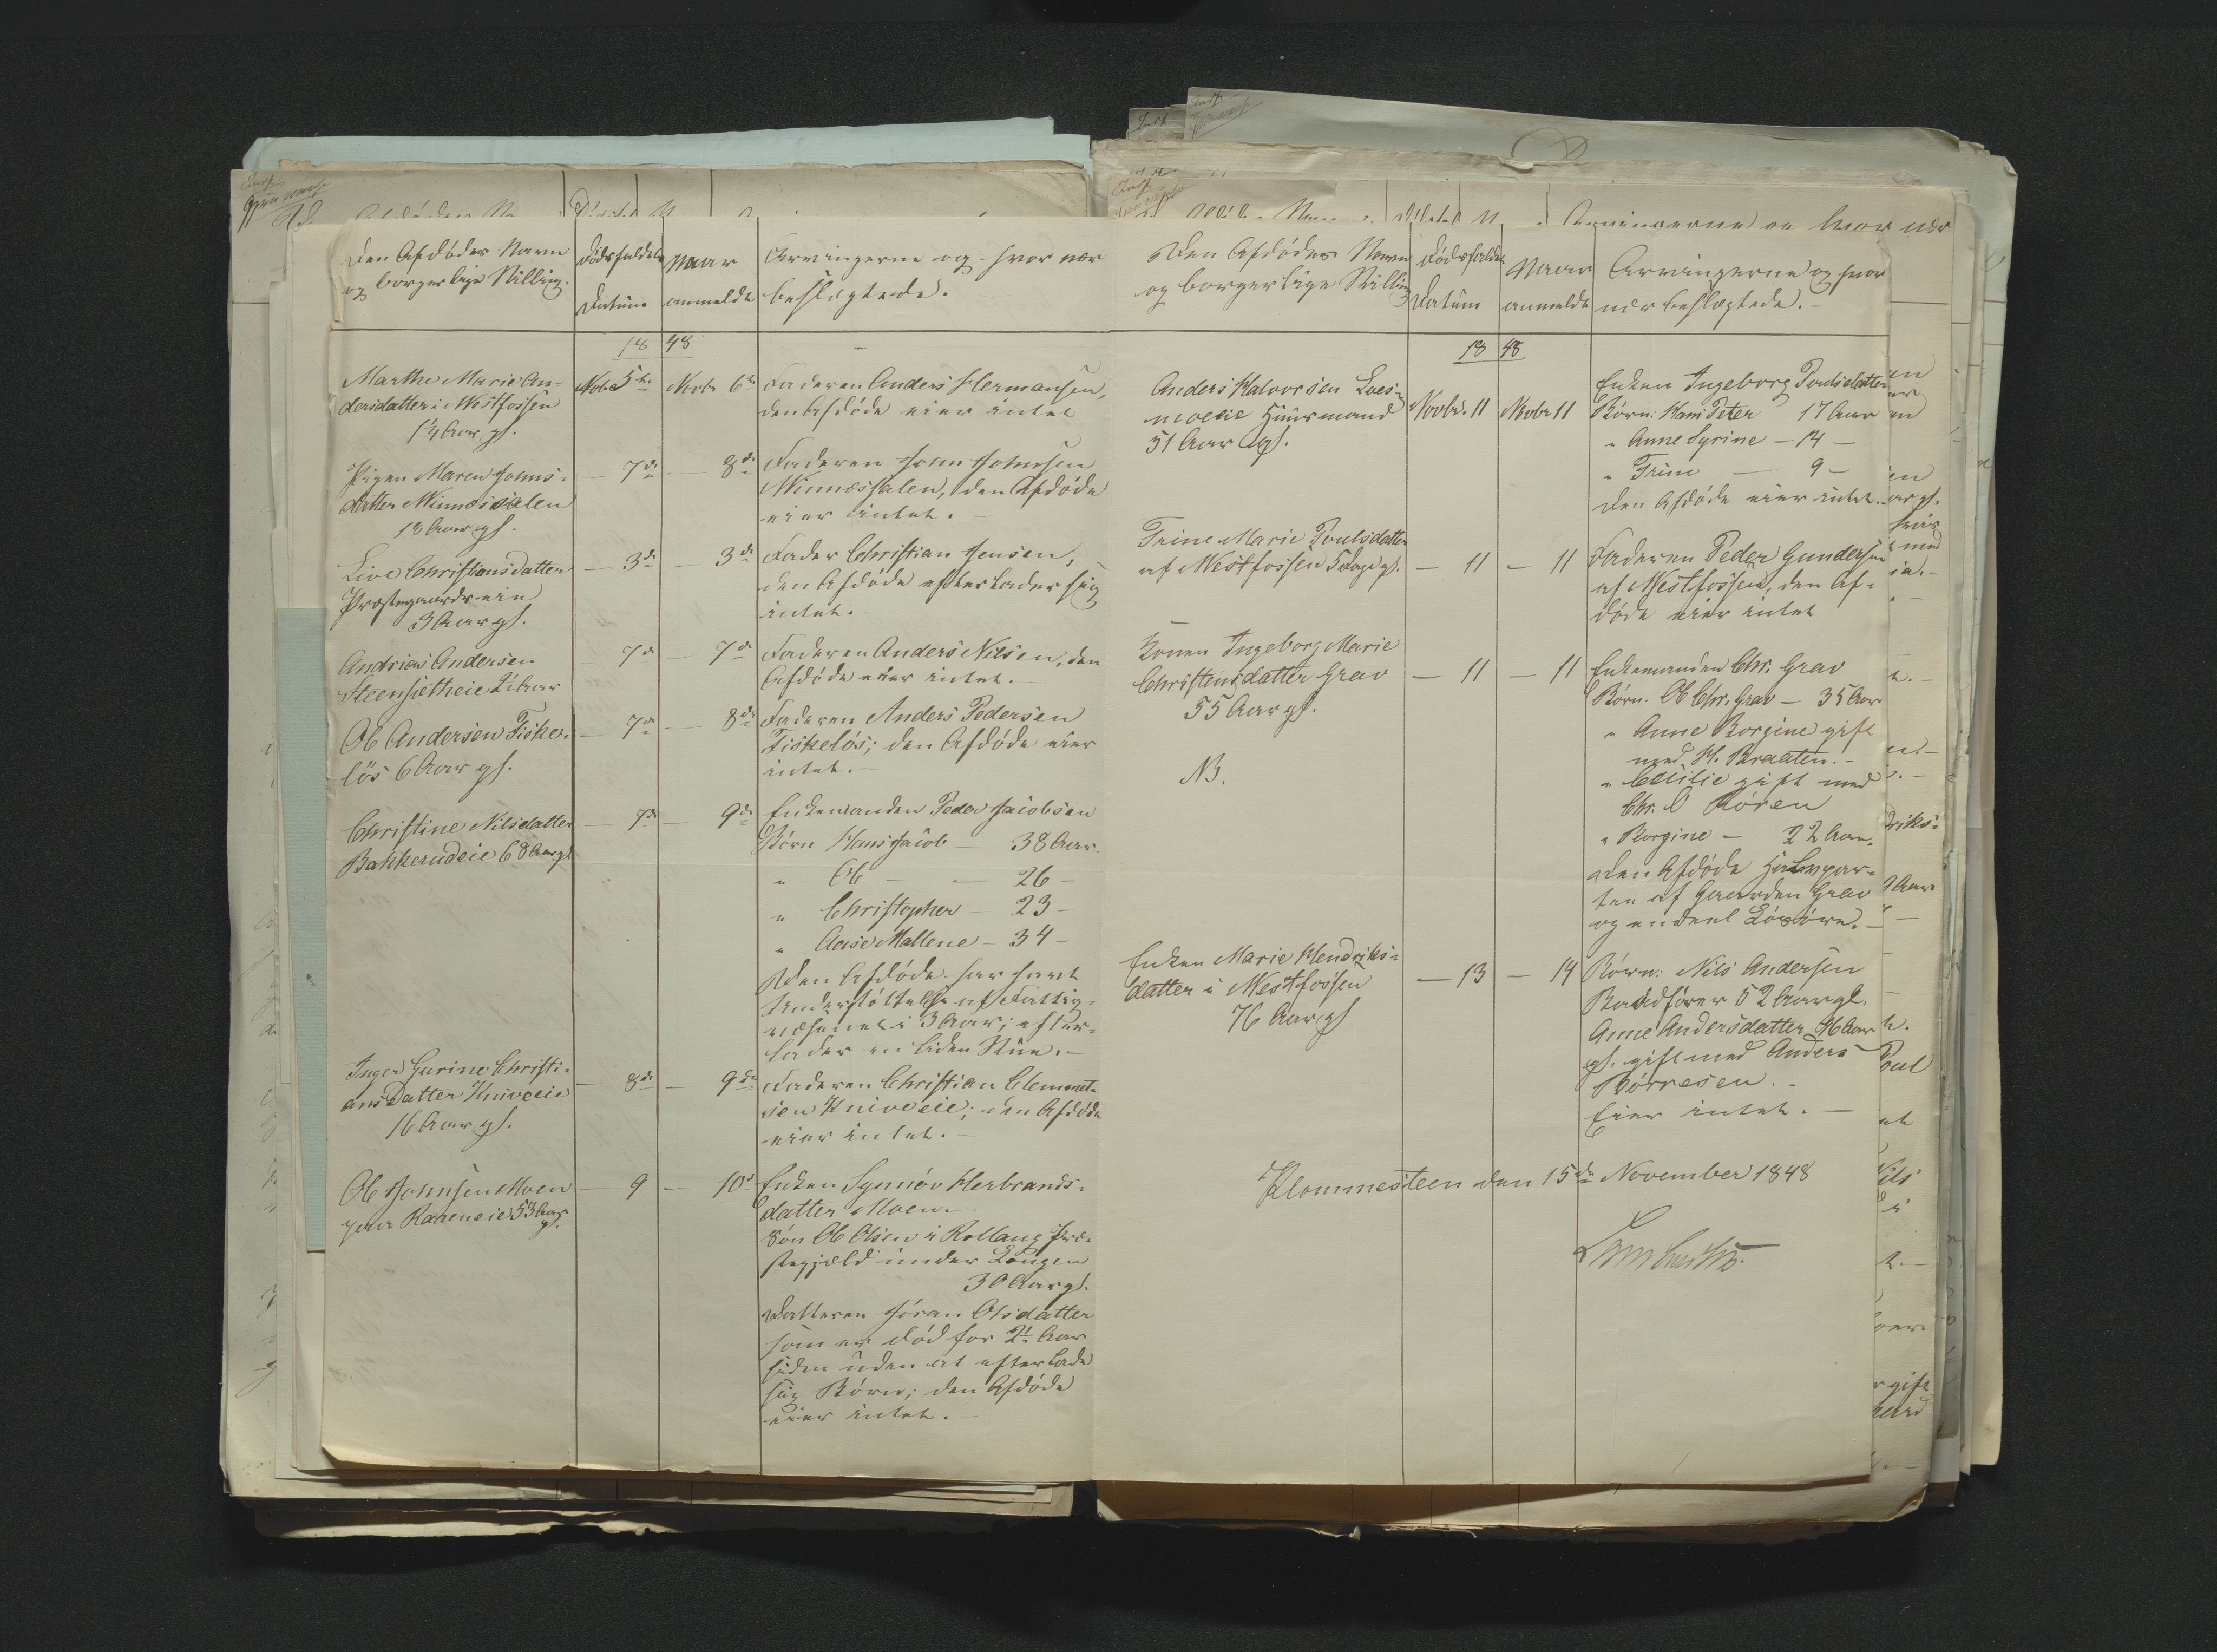 Den Afdødes Navn
og borgerlige Stilling.
Dødsfaldets
Datum
Naar
anmeldt
Arvingerne og hvor nær
beslægtede.
18 48
Marthe Marie An-
dersdatter i Westfossen
1¼ Aar gl.
Novbr 5te
Novbr 6te
Faderen Anders Hermansen,
den Afdøde eier intet
Pigen Maren Johns-
datter Minnessalen
18 Aar gl.
— 7de
— 8de
Faderen John Johnsen
Minnessalen, den Afdøde
eier intet. —
Live Christiansdatter
Præstegaardseie
3 Aar gl.
— 3de
— 3de
Fader Christian Jensen,
den Afdøde efterlader sig
intet. —
Andreas Andersen
Steensetheie Aar
— 7de
— 7de
Faderen Anders Nilsen, den
Afdøde eier intet. —
Ole Andersen Fiske-
løs 6 Aar gl.
— 7de
— 8de
Faderen Anders Pedersen
Fiskeløs; den Afdøde eier
intet. —
Christine Nilsdatter
Bakkerudeie 68 Aar gl
— 7de
— 9de
Enkemanden Peder Jacobsen
Børn Hans Jacob — 38 Aar
" Ole — — 26 —
" Christopher — 23 —
" Aase Mallene — 34 —
Den Afdøde har havt
Understøttelse af Fattig-
væsenet i 3 Aar; efter-
lader en liden Stue. —
Inger Gurine Christi-
ansdatter Kniveeie
16 Aar gl.
— 8de
— 9de
Faderen Christian Clemmet-
sen Kniveeie; den Afdøde
eier intet. —
Ole Johnsen Moen
paa Rareneie 53 Aar
gl.
— 9
— 10de
Enken Synnøv Herbrands-
datter Moen. —
Søn Ole Olsen i Rollaug Præ-
stegjæld under Lougen
30 Aar gl.
Datteren Jøran Olsdatter
som er død for 2½ Aar
siden uden at efterlade
sig Børn; den Afdøde
eier intet. —
Den Afdødes Navn
og borgerlige Stilling
Dødsfaldets
Datum
Naar
anmeldt
Arvingerne og hvor
nær beslægtede. —
18 48
Anders Halvorsen Loes-
moeeie Huusmand
51 Aar gl.
Novbr. 11
Novbr 11
Enken Ingeborg Poulsdatter
Børn: Hans Peter 17 Aar
" Anne Syrine — 14 —
" Trine — 9 —
den Afdøde eier intet. —
Trine Marie Poulsdatter
af Westfossen 5 Dage gl.
— 11
— 11
Faderen Peder Gundersen
af Westfossen, den Af-
døde eier intet
Konen Ingeborg Marie
Christensdatter Grav
55 Aar gl.
NB.
— 11
— 11
Enkemanden Chr. Grav
Børn. Ole Chr. Grav — 35 Aar
" Anne Borgine gift
med H. Braaten. —
" Cecilie gift med
Chr. O Røren
" Borgine — 22 Aar.
den Afdøde Halvpar-
ten af Gaarden Grav
og endeel Løsøre. —
Enken Marie Hendriks-
datter i Westfossen
76 Aar gl
— 13
— 14
Børn: Nils Andersen
Baadfører 52 Aar gl.
Anne Andersdatter 46 Aar
gl. gift med Anders
Børresen. —
Eier intet. —
Plommesteen den 15de November 1848